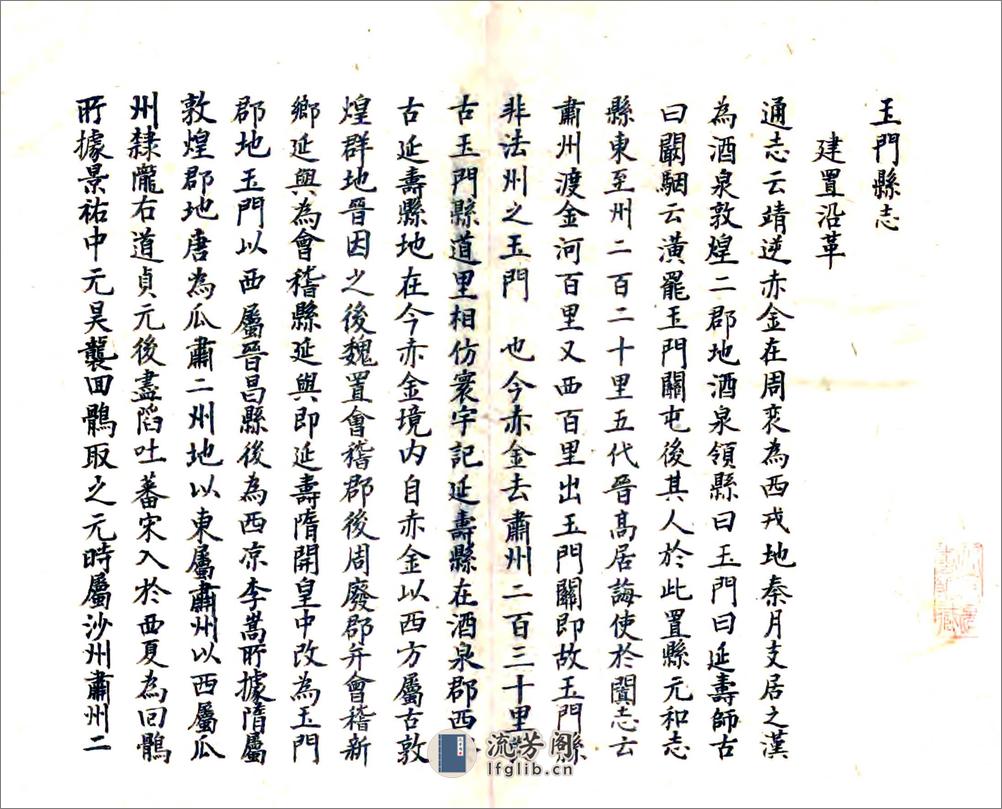 玉門縣志
建置沿革
通志云靖逆赤金在周衰為西戎地秦月支居之漢
為酒泉敦煌二郡地酒泉領縣曰玉門曰延壽師古
曰闞駰云潢罷玉門關屯後其人於此置縣元和志
縣東至州二百二十里五代晉高居誨使於闐志云
肅州渡金河百里又西百里出玉門關即故玉門縣
非法州之玉門 也今赤金去肅州二百三十里
古玉門縣道里相仿寰宇記延壽縣在酒泉郡西
古延壽縣地在今赤金境内自赤金以西方屬古敦
煌群地晉因之後魏置會稽郡後周廢郡并會稽新
鄉延興為會稽縣延興即延壽隋開皇中改為玉門
郡地玉門以西屬晉昌縣後為西凉李暠所據隋屬
敦煌郡地唐為瓜肅二州地以東屬肅州以西屬瓜
州隸隴右道貞元後盡陷吐蕃宋入於西夏為回鶻
所據景祐中元昊襲回鶻取之元時屬沙州肅州二
流芳阁
lfglib.cn